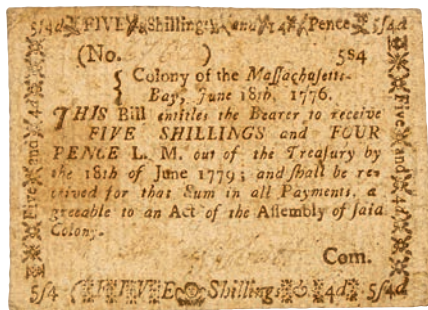 5/4d FIVE Shillings and 4d Pence 5/4d
(No. ) 5s4
Colony of the Maſſachuſetts-
Bay, June 18th, 1776.
THIS Bill entitles the Bearer to receive
FIVE SHILLINGS and FOUR
PENCE L. M. out of the Treaſury by
the 18th of June 1779; and ſhall be re-
ceived for that Sum in all Payments, a
greeable to an Act of the Aſſembly of ſaid
Colony.
Com.
5ſ4 FIVE Shillings & 4d. 5ſ4d
Five and 4d
Five and 4d